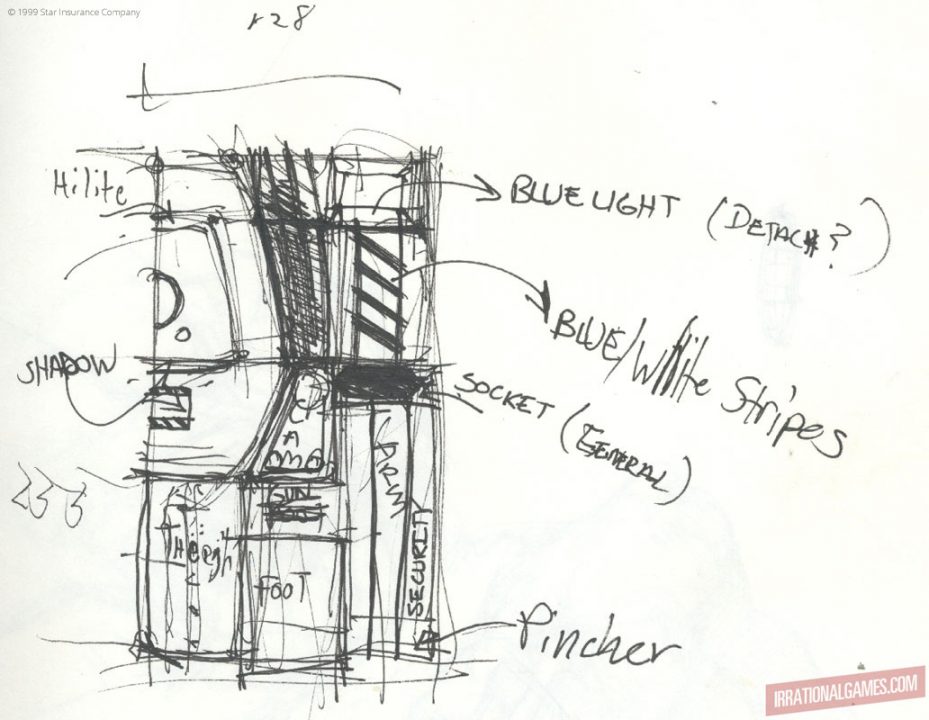 © 1999 Star Insurance Company
128
Hilite
BLUE LIGHT (DETACH?)
BLUE/White Stripes
SHADOW
SOCKET (GENERAL)
ARM
GUN
SECURITY
FOOT
Pincher
IRRATIONALGAMES.COM